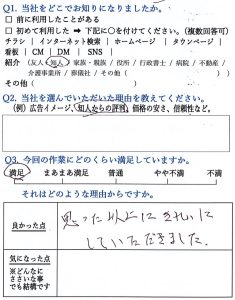 Q1. 当社をどこでお知りになりましたか。
□ 前に利用したことがある
□ 初めて利用した ⇒ 下記に○を付けてください。(複数回答可)
チラシ | インターネット検索 | ホームページ | タウンページ |
看板 | CM | DM | SNS |
紹介 (友人・知人・家族・親戚・役所・行政書士・病院・不動産・
介護事業所・葬儀社・その他( )
その他( )
Q2. 当社を選んでいただいた理由を教えてください。
(例) 広告イメージ、知人からの評判、価格の安さ、信頼性など。
Q3. 今回の作業にどのくらい満足していますか。
満足 まあまあ満足 普通 やや不満 不満
それはどのような理由からですか。
良かった点
思った以上にきれいに
していただきました。
気になった点
※どんなに
ささいな事
でも結構です